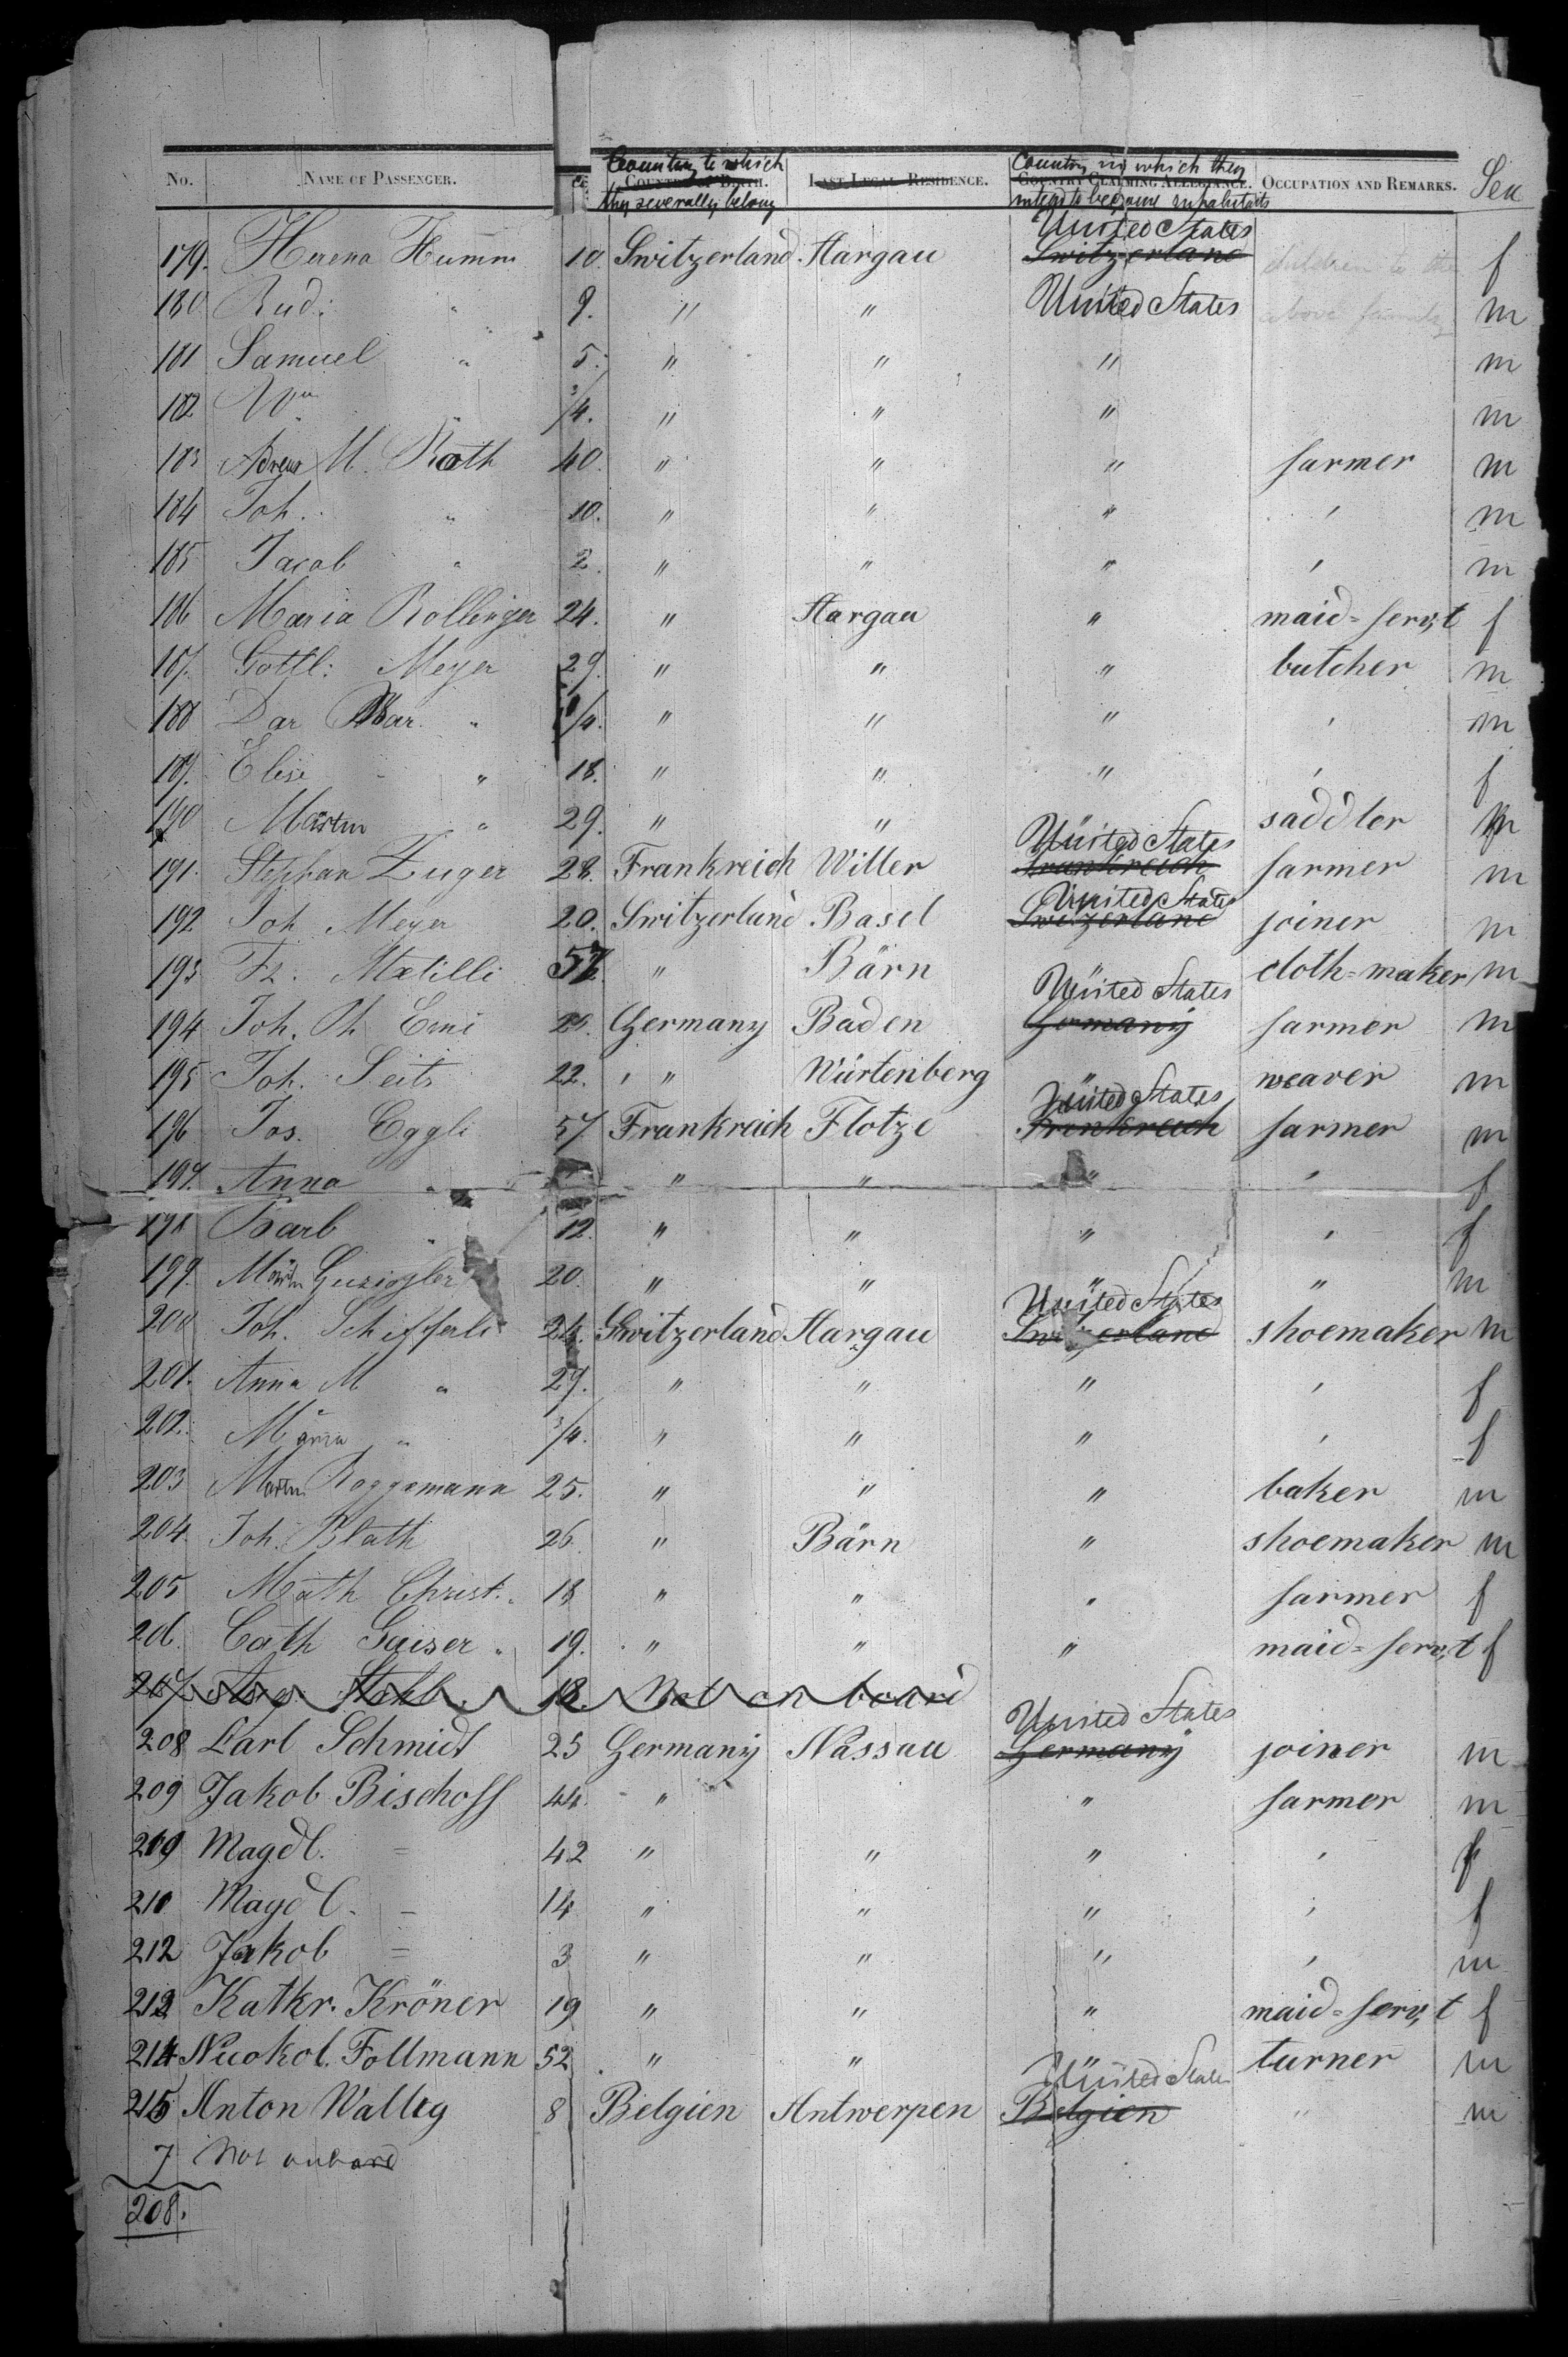 No. NAME OF PASSENGER. Country to which they severally belong COUNTRY OF BIRTH. LAST LEGAL RESIDENCE. Country in which they intend to become inhabitants COUNTRY CLAIMING ALLEGIANCE. OCCUPATION AND REMARKS. Sex
179. Humm 10. Switzerland Aargau United States Switzerland children to the f
180 Rud: " 9. " " United States above family m
181 Samuel " 5. " " " m
182 Wm " 3/4. " " " m
183 M. Roth 40. " " " farmer m
184 Joh. " 10. " " " ' m
185 Jacob " 2. " " " ' m
186 Maria Bollinger 24. " Aargau " maid=serv,t f
187. Gottl: Meyer 29. " " " butcher m
188 Bar. " /4. " " " ' m
189. Elise " 18. " " " ' f
190 Martin " 29. " " " saddler m
191. Stephan Zuger 28. Frankreich Willer United States Frankreich farmer m
192 Joh Meyer 20. Switzerland Basel United States Switzerland joiner m
193 Fz. Matilli " Bärn " cloth=maker m
194 Joh. Erni Germany Baden United States Germany farmer m
195 Joh. Seitz 22. " Würtenberg " weaver m
196 Jos. Eggli 57 Frankreich Flotze United States Frankreich farmer m
197. Anna " " " " ' f
198 Barb " 12. " " " ' f
199. 20. " " " " m
200 Joh. Schifferli 24. Switzerland Aargau United States Switzerland shoemaker m
201. Anna M " 29. " " " ' f
202. Maria " 3/4. " " " ' f
203 Martin Roggemann 25. " " " baker m
204. Joh. Blath 26 " Bärn " shoemaker m
205 Math Christ. 18 " " " farmer f
206. Cath Gaiser " 19. " " " maid=serv,t f
207 18. Not on board
208 Carl Schmidt 25 Germany Nassau United States Germany joiner m
209 Jakob Bischoff 44 " " farmer m
209 Magdl. = 42 " " " ' f
210 Magdl. = 14 " " " ' f
212 Jakob = 3 " " " ' m
212 Kathr. Kröner 19 " " " maid=serv,t f
214 Nicokol. Follmann 52 " " " turner m
215 Anton Walleg 8 Belgien Antwerpen United States Belgien " m
7 Not onboard
208.